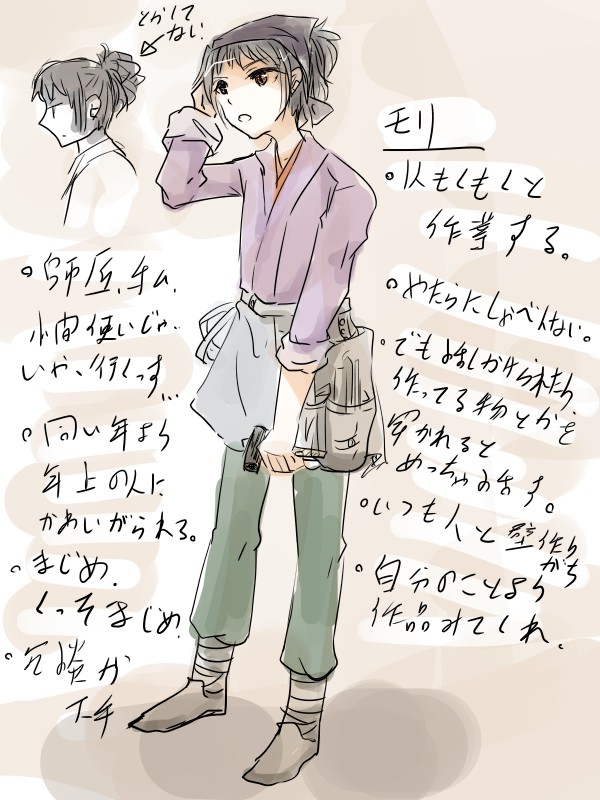 とかして
ない!
モリ
。もくもくと
作業する。
。めったらにしゃべんない。
。でも話しかけられたり、
作ってる物とかを
聞かれると
めっちゃ話す。
。いつも人と壁作り
がち
。自分のことより
作品みてくれ。
。師匠、私、
小間使いじゃ…
いや、行くっす…
。同い年より
年上の人に
かわいがられる。
。まじめ。
くっそまじめ。
。冗談が
下手